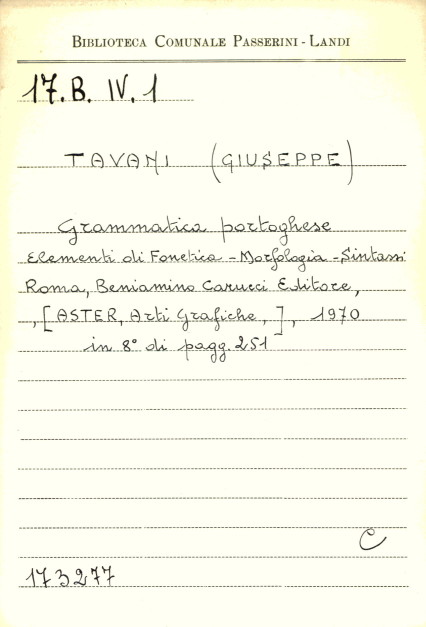 BIBLIOTECA COMUNALE PASSERINI - LANDI
17. B. IV. 1
TAVANI (GIUSEPPE)
Grammatica portoghese
Elementi di Fonetica - Morfologia - Sintassi
Roma, Beniamino Carucci Editore,
, [ASTER, Arti Grafiche, ], 1970
in 8° di pagg. 251
C
173277